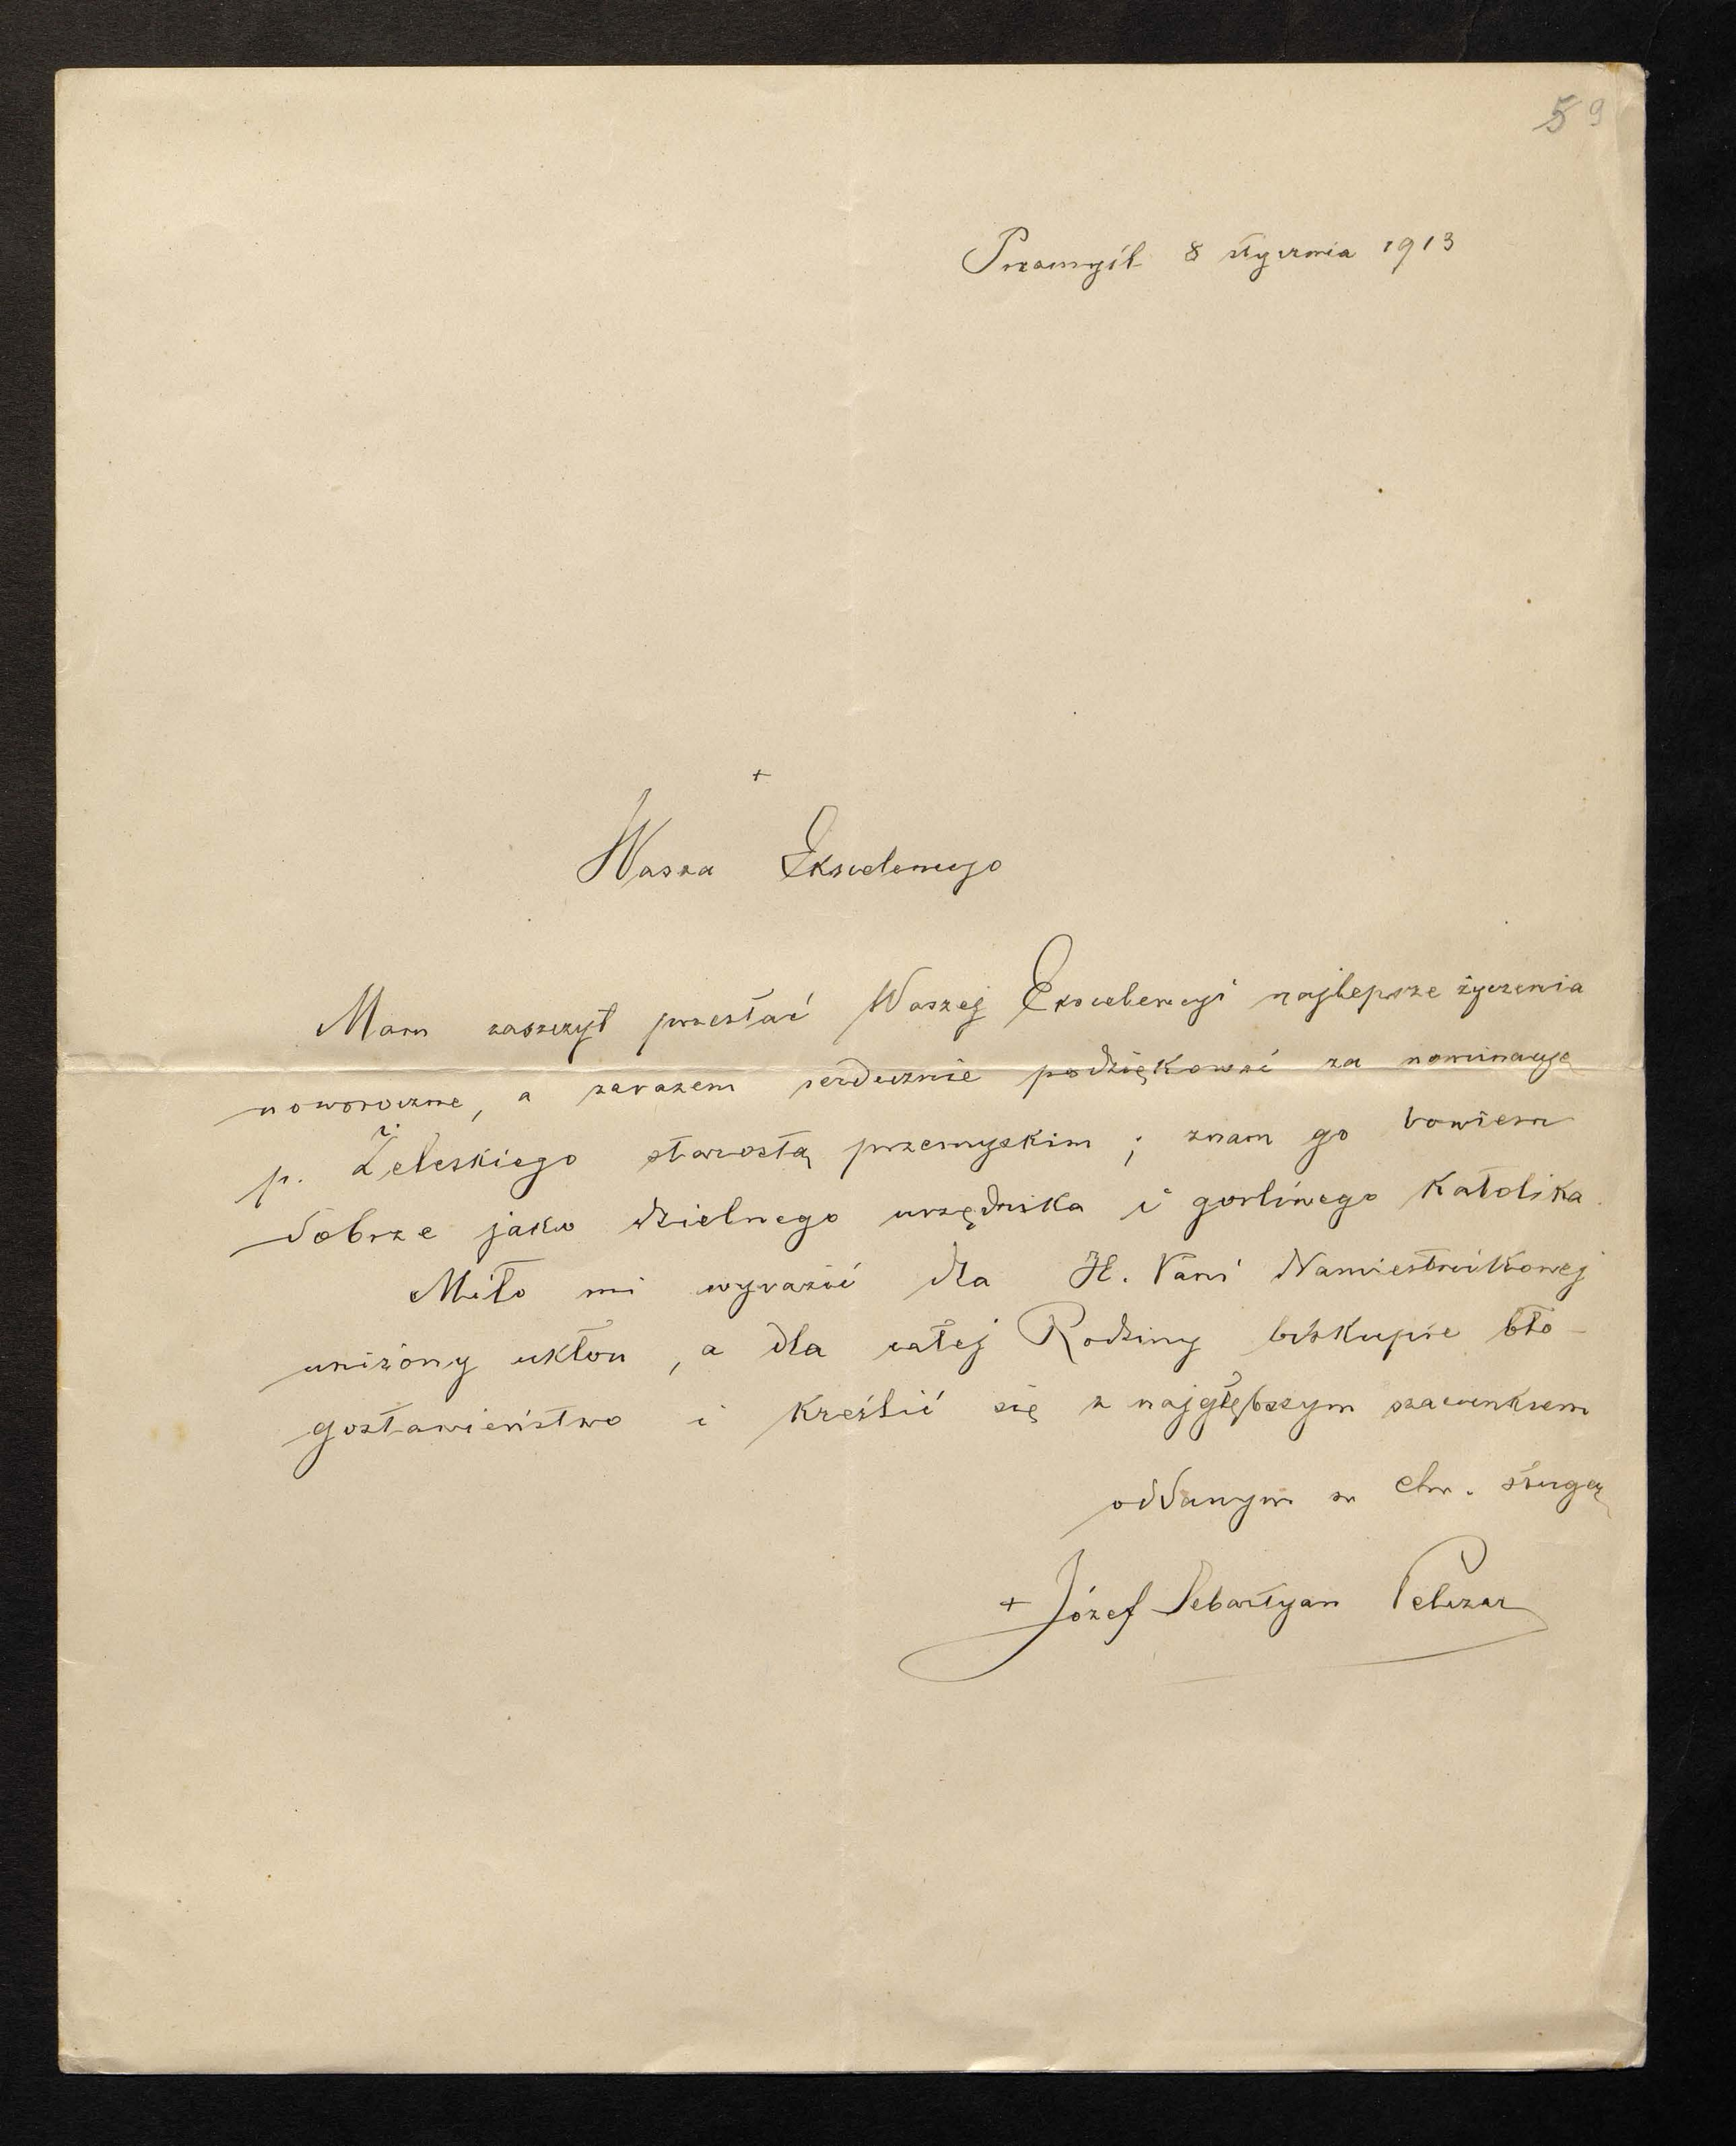 59
Przemyśl 8 stycznia 1913
+
Wasza Ekscelencyo
Mam zaszczyt przesłać Waszej Ekscelencyi najlepsze życzenia
noworoczne, a zarazem serdecznie podziękować za nominacyę
p. Żeleskiego starostą przemyskim; znam go bowiem
dobrze jako dzielnego urzędnika i gorliwego katolika.
Miło mi wyrazić dla JE. Pani Namiestnikowej
uniżony ukłon, a dla całej Rodziny biskupie bło-
gosławieństwo i kreślić się z najgłębszym szacunkiem
oddanym w Chr. sługą
+ Józef Sebastyan Pelczar